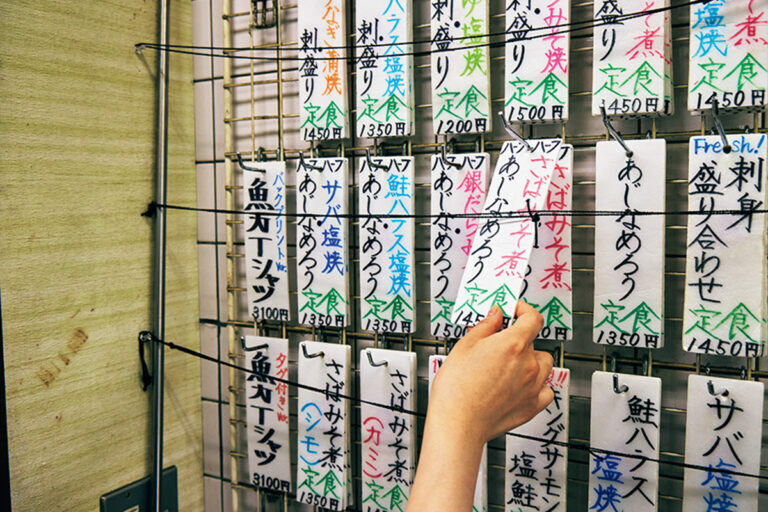 なぎ 蒲焼
刺盛り
定食
1450円
ハラス塩焼
刺盛り
定食
1350円
ゆ塩焼
刺盛り
定食
1200円
みそ煮
刺盛り
定食
1500円
煮
刺盛り
定食
1450円
煮
塩焼
定食
1450円
バックプリントver.
魚力Tシャツ
3100円
ハーフハーフ
サバ塩焼
あじなめろう
定食
1350円
ハーフハーフ
鮭ハラス塩焼
あじなめろう
定食
1350円
ハーフハーフ
銀だらみ
あじなめろう
定食
ハーフハーフ
さばみそ煮
あじなめろう
定食
さばみそ煮
定食
円
あじなめろう
定食
1350円
Fresh!
刺身
盛り合わせ
定食
1450円
タグ付きver.
魚力Tシャツ
3100円
さばみそ煮
(シモ)
定食
1350円
さばみそ煮
(カミ)
定食
1350円
!!
キングサモン
塩鮭
鮭ハラス
塩焼
サバ
塩焼